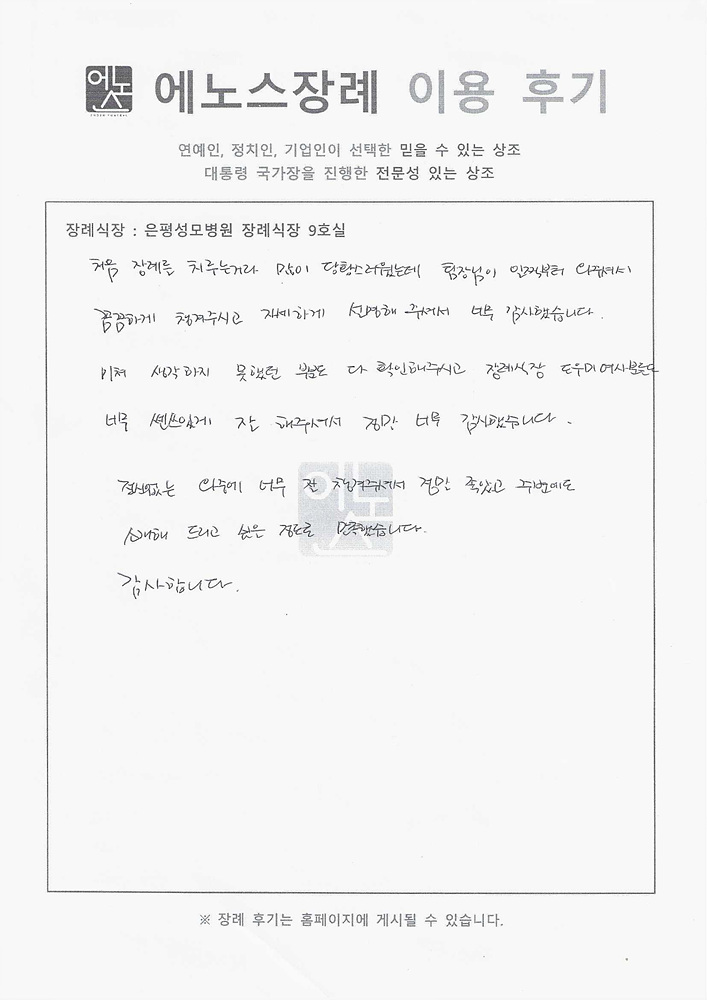 에노스
에노스장례 이용 후기
연예인, 정치인, 기업인이 선택한 믿을 수 있는 상조
대통령 국가장을 진행한 전문성 있는 상조
장례식장 : 은평성모병원 장례식장 9호실
처음 장례를 치루는거라 많이 당황스러웠는데 팀장님이 일찍부터 와주셔서
꼼꼼하게 챙겨주시고 자세하게 설명해 주셔서 너무 감사했습니다.
미쳐 생각하지 못했던 부분도 다 확인해주시고 장례식장 도우미여사분들도
너무 쎈쓰있게 잘 해주셔서 정말 너무 감사했습니다.
정신없는 와중에 너무 잘 챙겨주셔서 정말 좋았고 주변에도
소개해 드리고 싶은 정도로 만족했습니다.
감사합니다.
에노스
※ 장례 후기는 홈페이지에 게시될 수 있습니다.